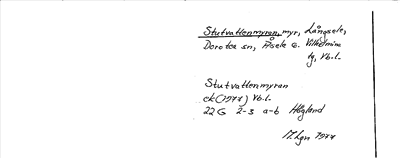 Stutvattenmyran, myr, Långsele,
Dorotea sn, Åsele o. Vilhelmina
tg, Vb.l.
Stutvattenmyran
ek (1974) Vb.l.
22G 2-3 a-b Högland
1974